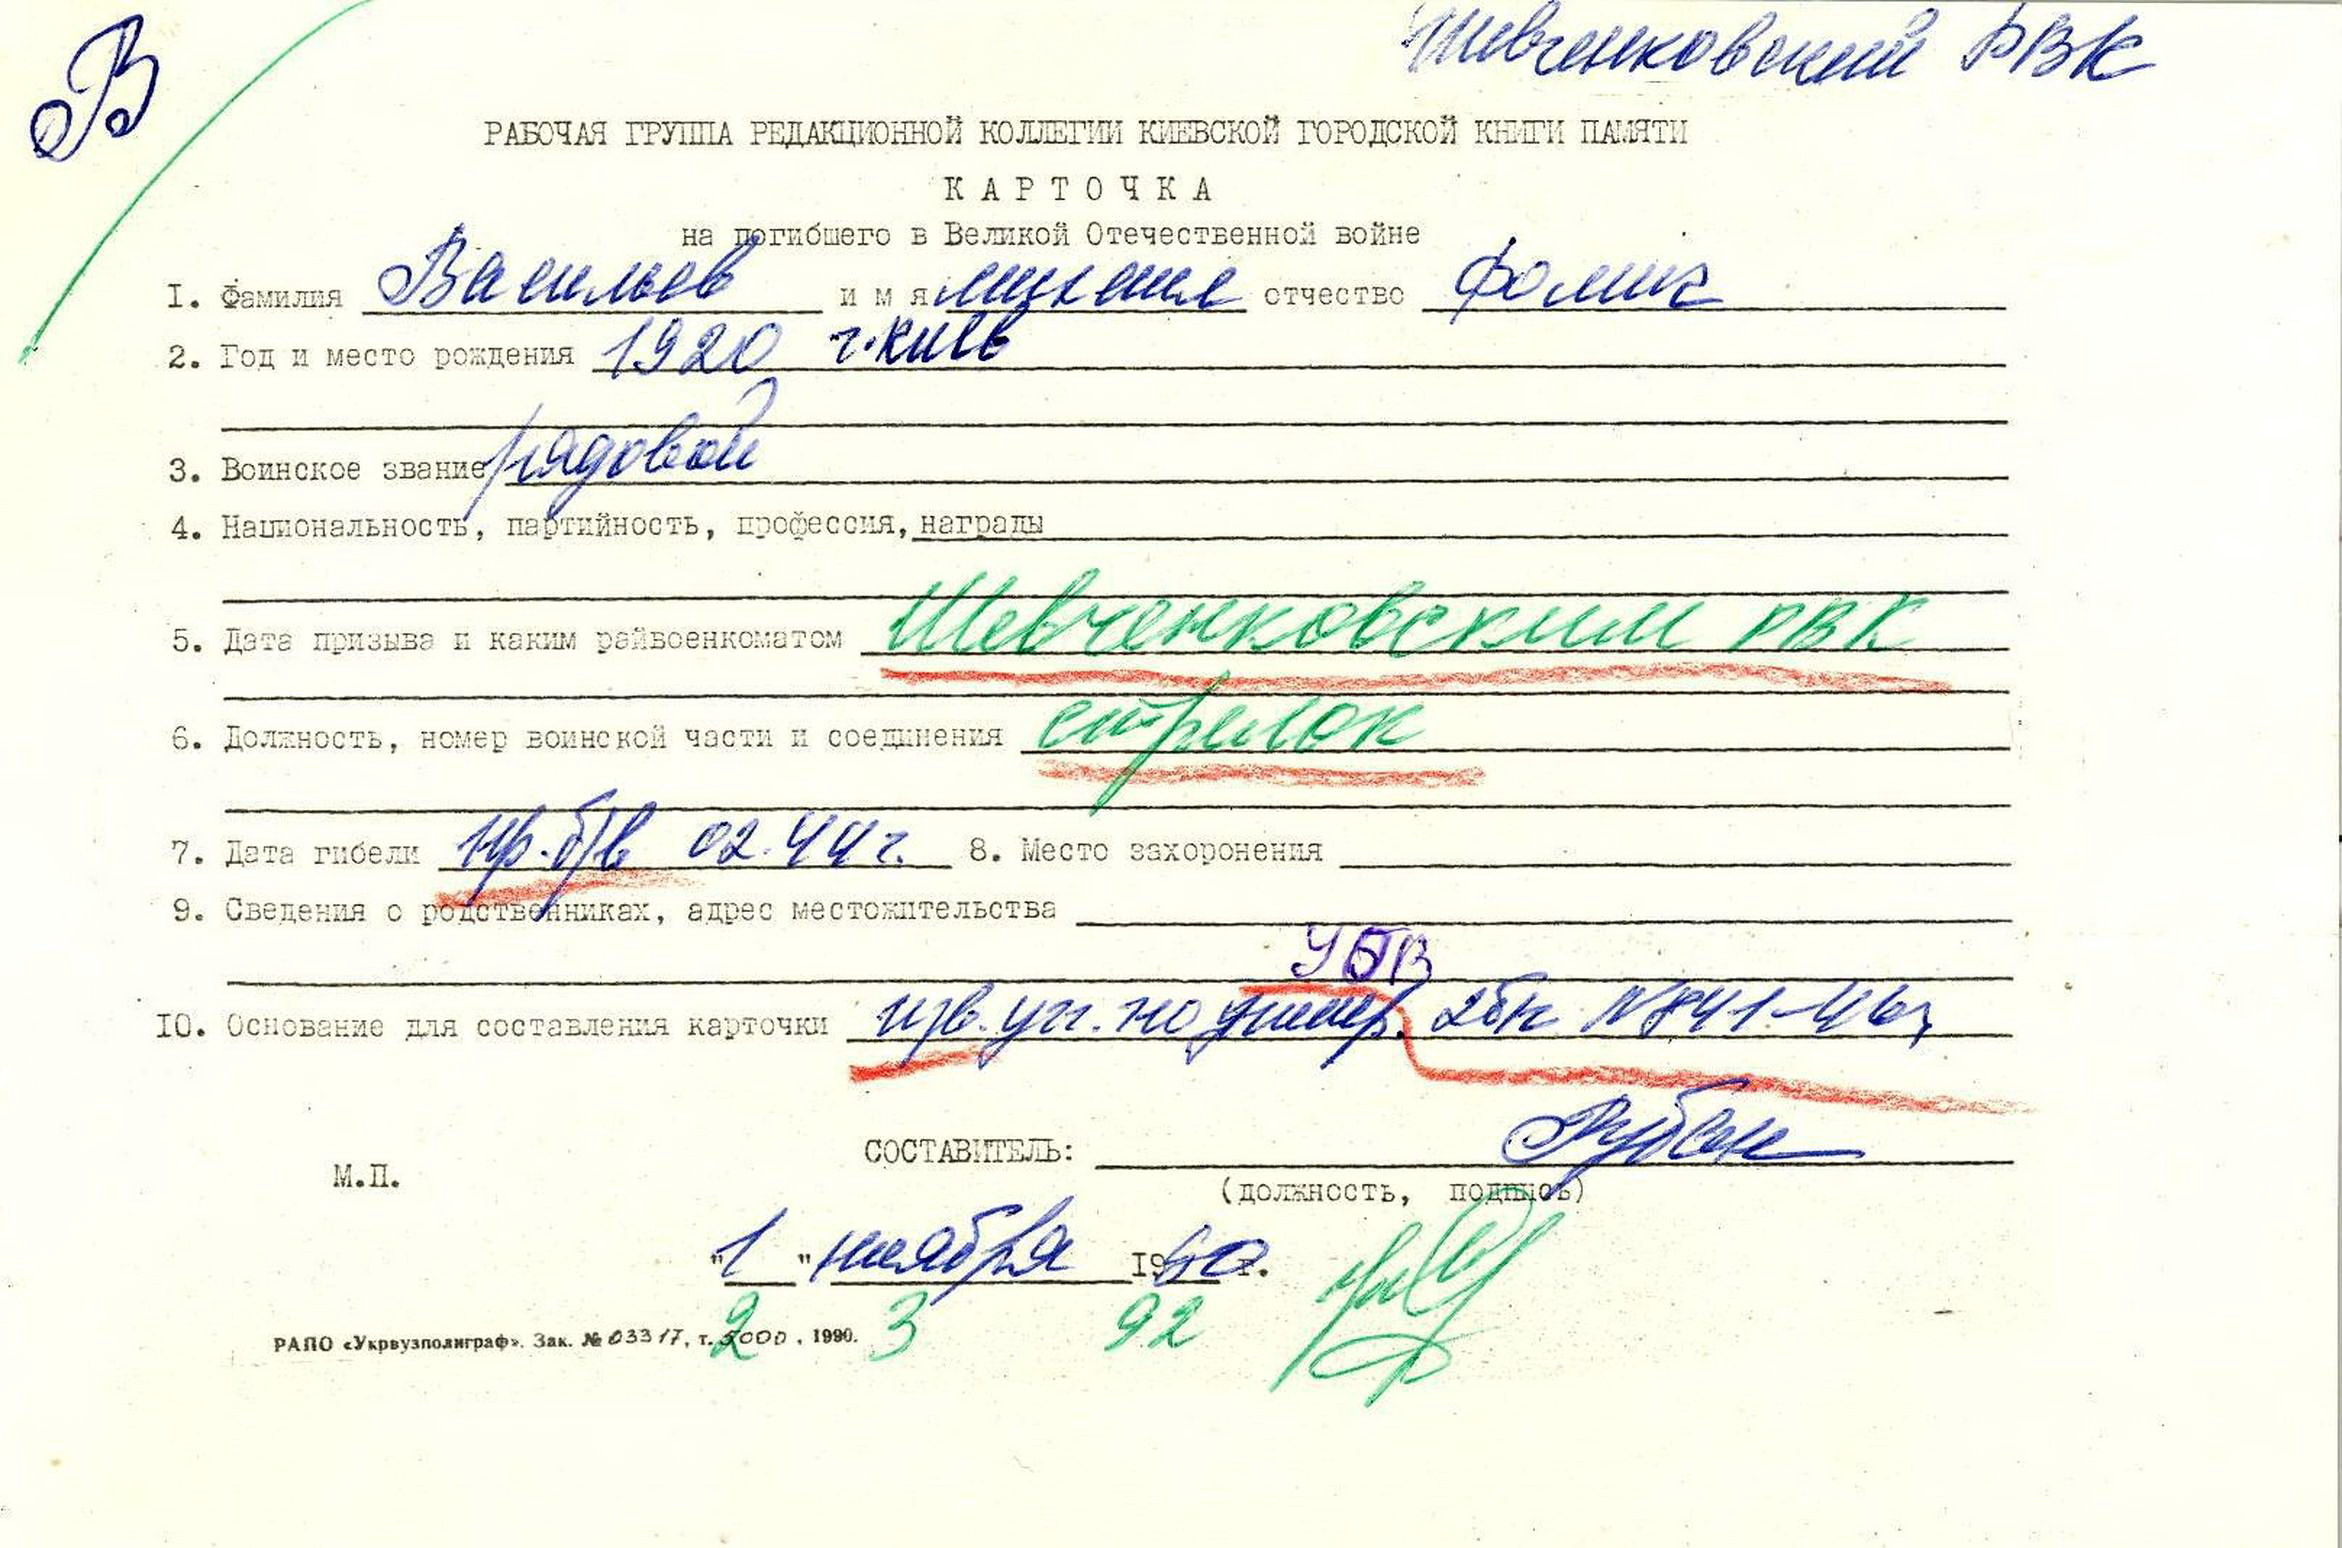 В
Шевченковский РВК
РАБОЧАЯ ГРУППА РЕДАКЦИОННОЙ КОЛЛЕГИИ КИЕВСКОЙ ГОРОДСКОЙ КНИГИ ПАМЯТИ
К А Р Т О Ч К А
на погибшего в Великой Отечественной войне
I. Фамилия Васильев и м я Михаил отчество Фомич
2. Год и место рождения 1920 г. Киев
3. Воинское звание рядовой
4. Национальность, партийность, профессия, награды
5. Дата призыва и каким райвоенкоматом Шевченковским РВК
6. Должность, номер воинской части и соединения стрелок
7. Дата гибели пр. б/в 02.44г. 8. Место захоронения
9. Сведения о родственниках, адрес местожительства
УПВ
I0. Основание для составления карточки изв. уп. по 
СОСТАВИТЕЛЬ: Рубан
М.П.
(должность, подпись)
"1" ноября 1990 г.
2 3 92
РАПО «Укрвузполиграф». Зак. № 03317, т. 5000, 1990.